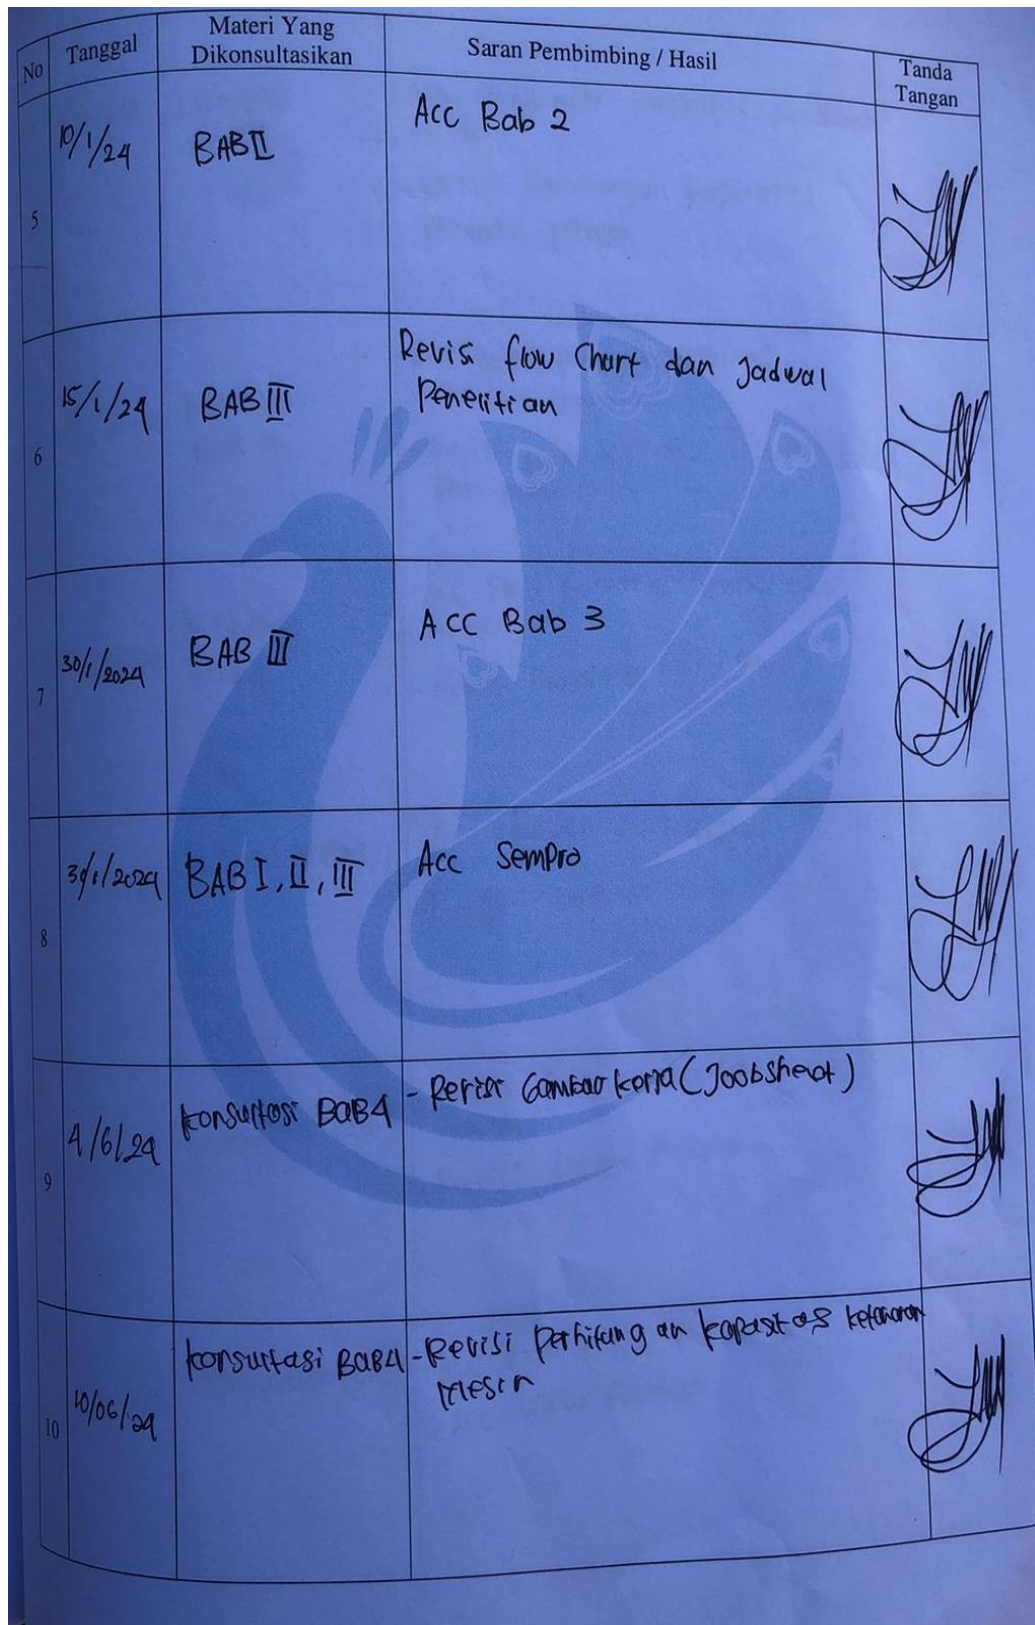 No
Tanggal
Materi Yang
Dikonsultasikan
Saran Pembimbing / Hasil
Tanda
Tangan
5
10/1/24
BAB II
Acc Bab 2
6
15/1/24
BAB III
Revisi flow Chart dan Jadwal
Penelitian
7
30/1/2024
BAB III
Acc Bab 3
8
/1/2024
BAB I, II, III
Acc Sempro
9
4/6/24
konsultasi BAB4
- Revisi Gambar kerja (Joobsheet)
10
10/06/24
konsultasi BAB4
- Revisi Perhitungan kapasitas
mesin